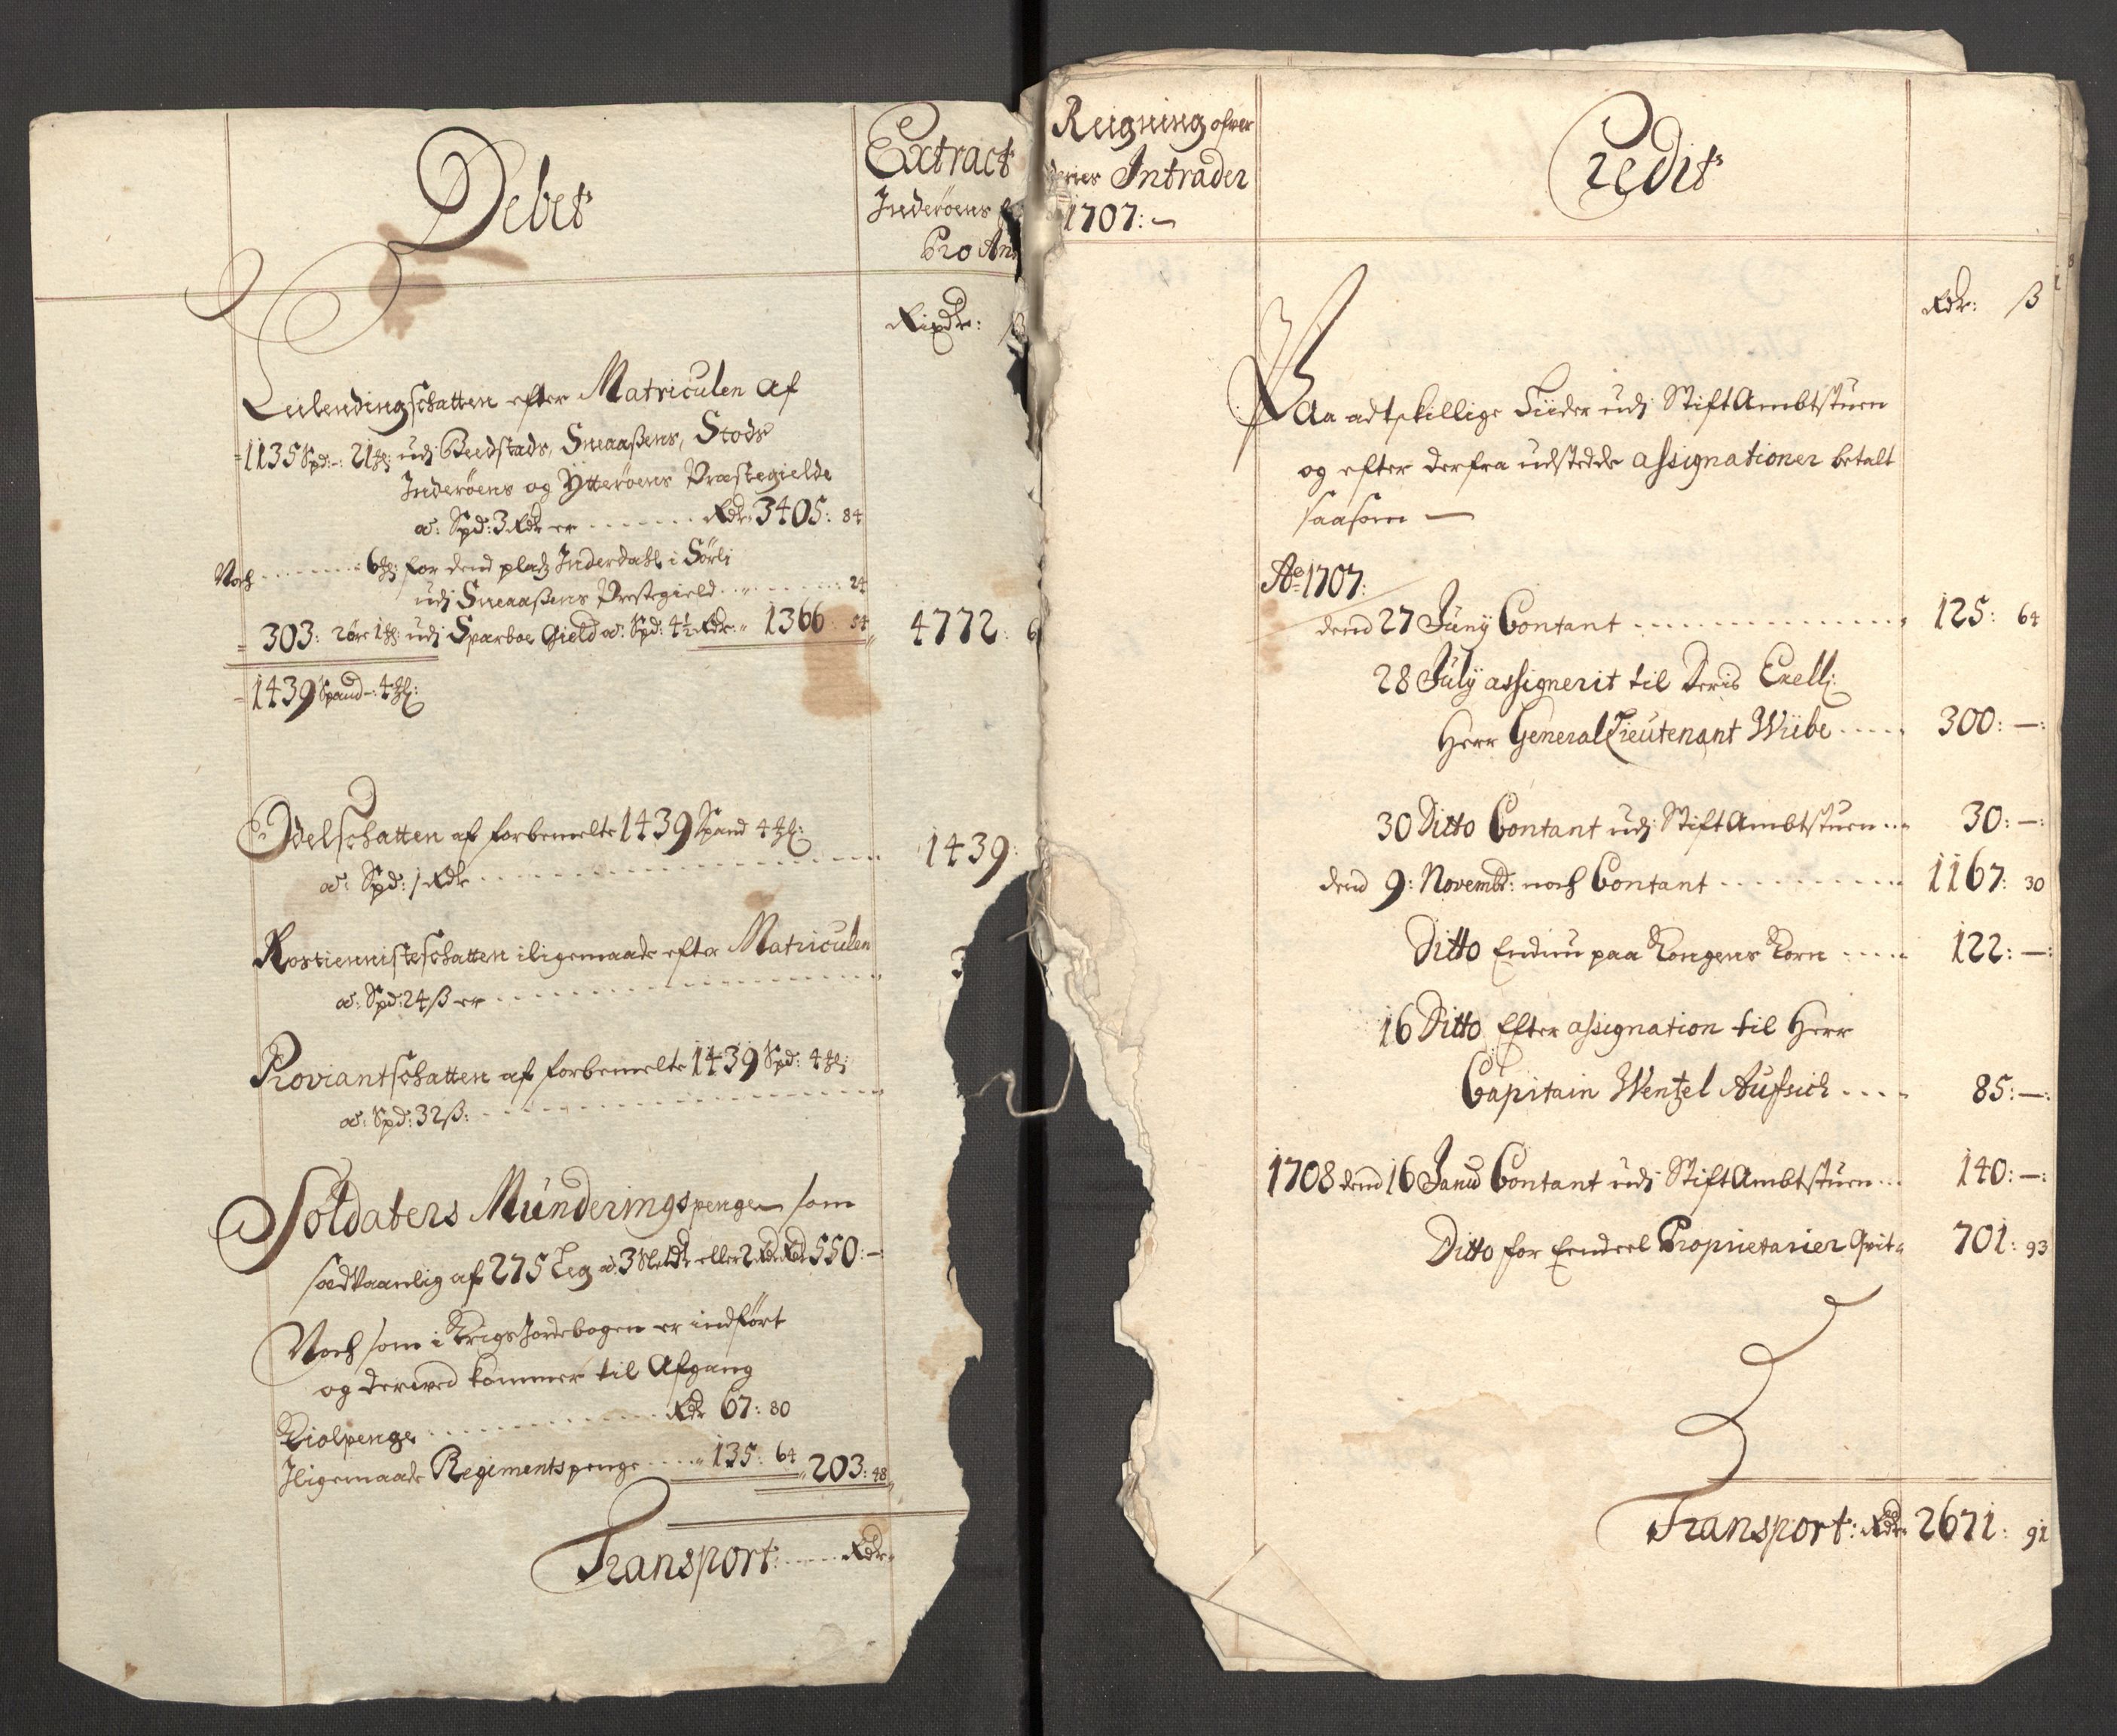 Debet
Extract
Inderöens
Pro An
Rixdr: ß
Leilendingschatten efter Matriculen af
1135 Spd:-: 21 ℔: udj Beedstads, Sneaaßens, Stods
Inderöens og Ytteröens Præstegielde
a: Spd: 3 Rdr er ...... Rdr: 3405: 84
Noch ...... 6 ℔: for dend pladz Inderdahl i Sörli
udj Sneaaßens Præstegield ...... 24
303: 2 öre 1 ℔: udj Sparboe Gield a: Spd: 4½ Rdr: 1366: 54
4772: 6
1439 Spand-: 4 ℔:
Odelschatten af forbemelte 1439 Spand 4 ℔:
a: Spd: 1 Rdr ...... 1439:
Rostienisteschatten iligemaade efter Matriculen
a: Spd: 24 ß er ...... 3
Proviantschatten af forbemelte 1439 Spd: 4 ℔:
a: Spd: 32 ß: ......
Soldaters Münderingspenge som
sædvaanlig af 275 Leg a: 3 eller 2 Rdr Rdr 550:-
Noch som i Krigs Jordebogen er indfört
og derved kommer til Afgang
Kiolpenge ...... Rdr 67: 80
Iligemaade Regimentspenge ...... 135: 64
203: 48
Transport: ...... Rdr
Reigning ofver
Intrader
1707:-
Credit
Rdr: ß
Paa adtskillige Tiider udj StiftAmbtstuen
og efter derfra udstedde assignationer betalt
saasom —
Ao 1707:
dend 27 Junÿ Contant ...... 125: 64
28 Julÿ assignerit til Deris Exell:
Herr General Lieutenant Wiibe ..... 300: —:
30 Ditto Contant udj StiftAmbtstuen ... 30: —:
dend 9: Novembr: noch Contant ...... 1167: 30
Ditto Endnu paa Kongens Korn ..... 122: —:
16 Ditto Efter assignation til Herr
Capitain Wentzel Aufsich .... 85: —:
1708 dend 16 Janu Contant udj StiftAmbtstuen ... 140: —:
Ditto for Eendeel Proprietarier Qvit: 701: 93
Transport: Rdr: 2671: 91